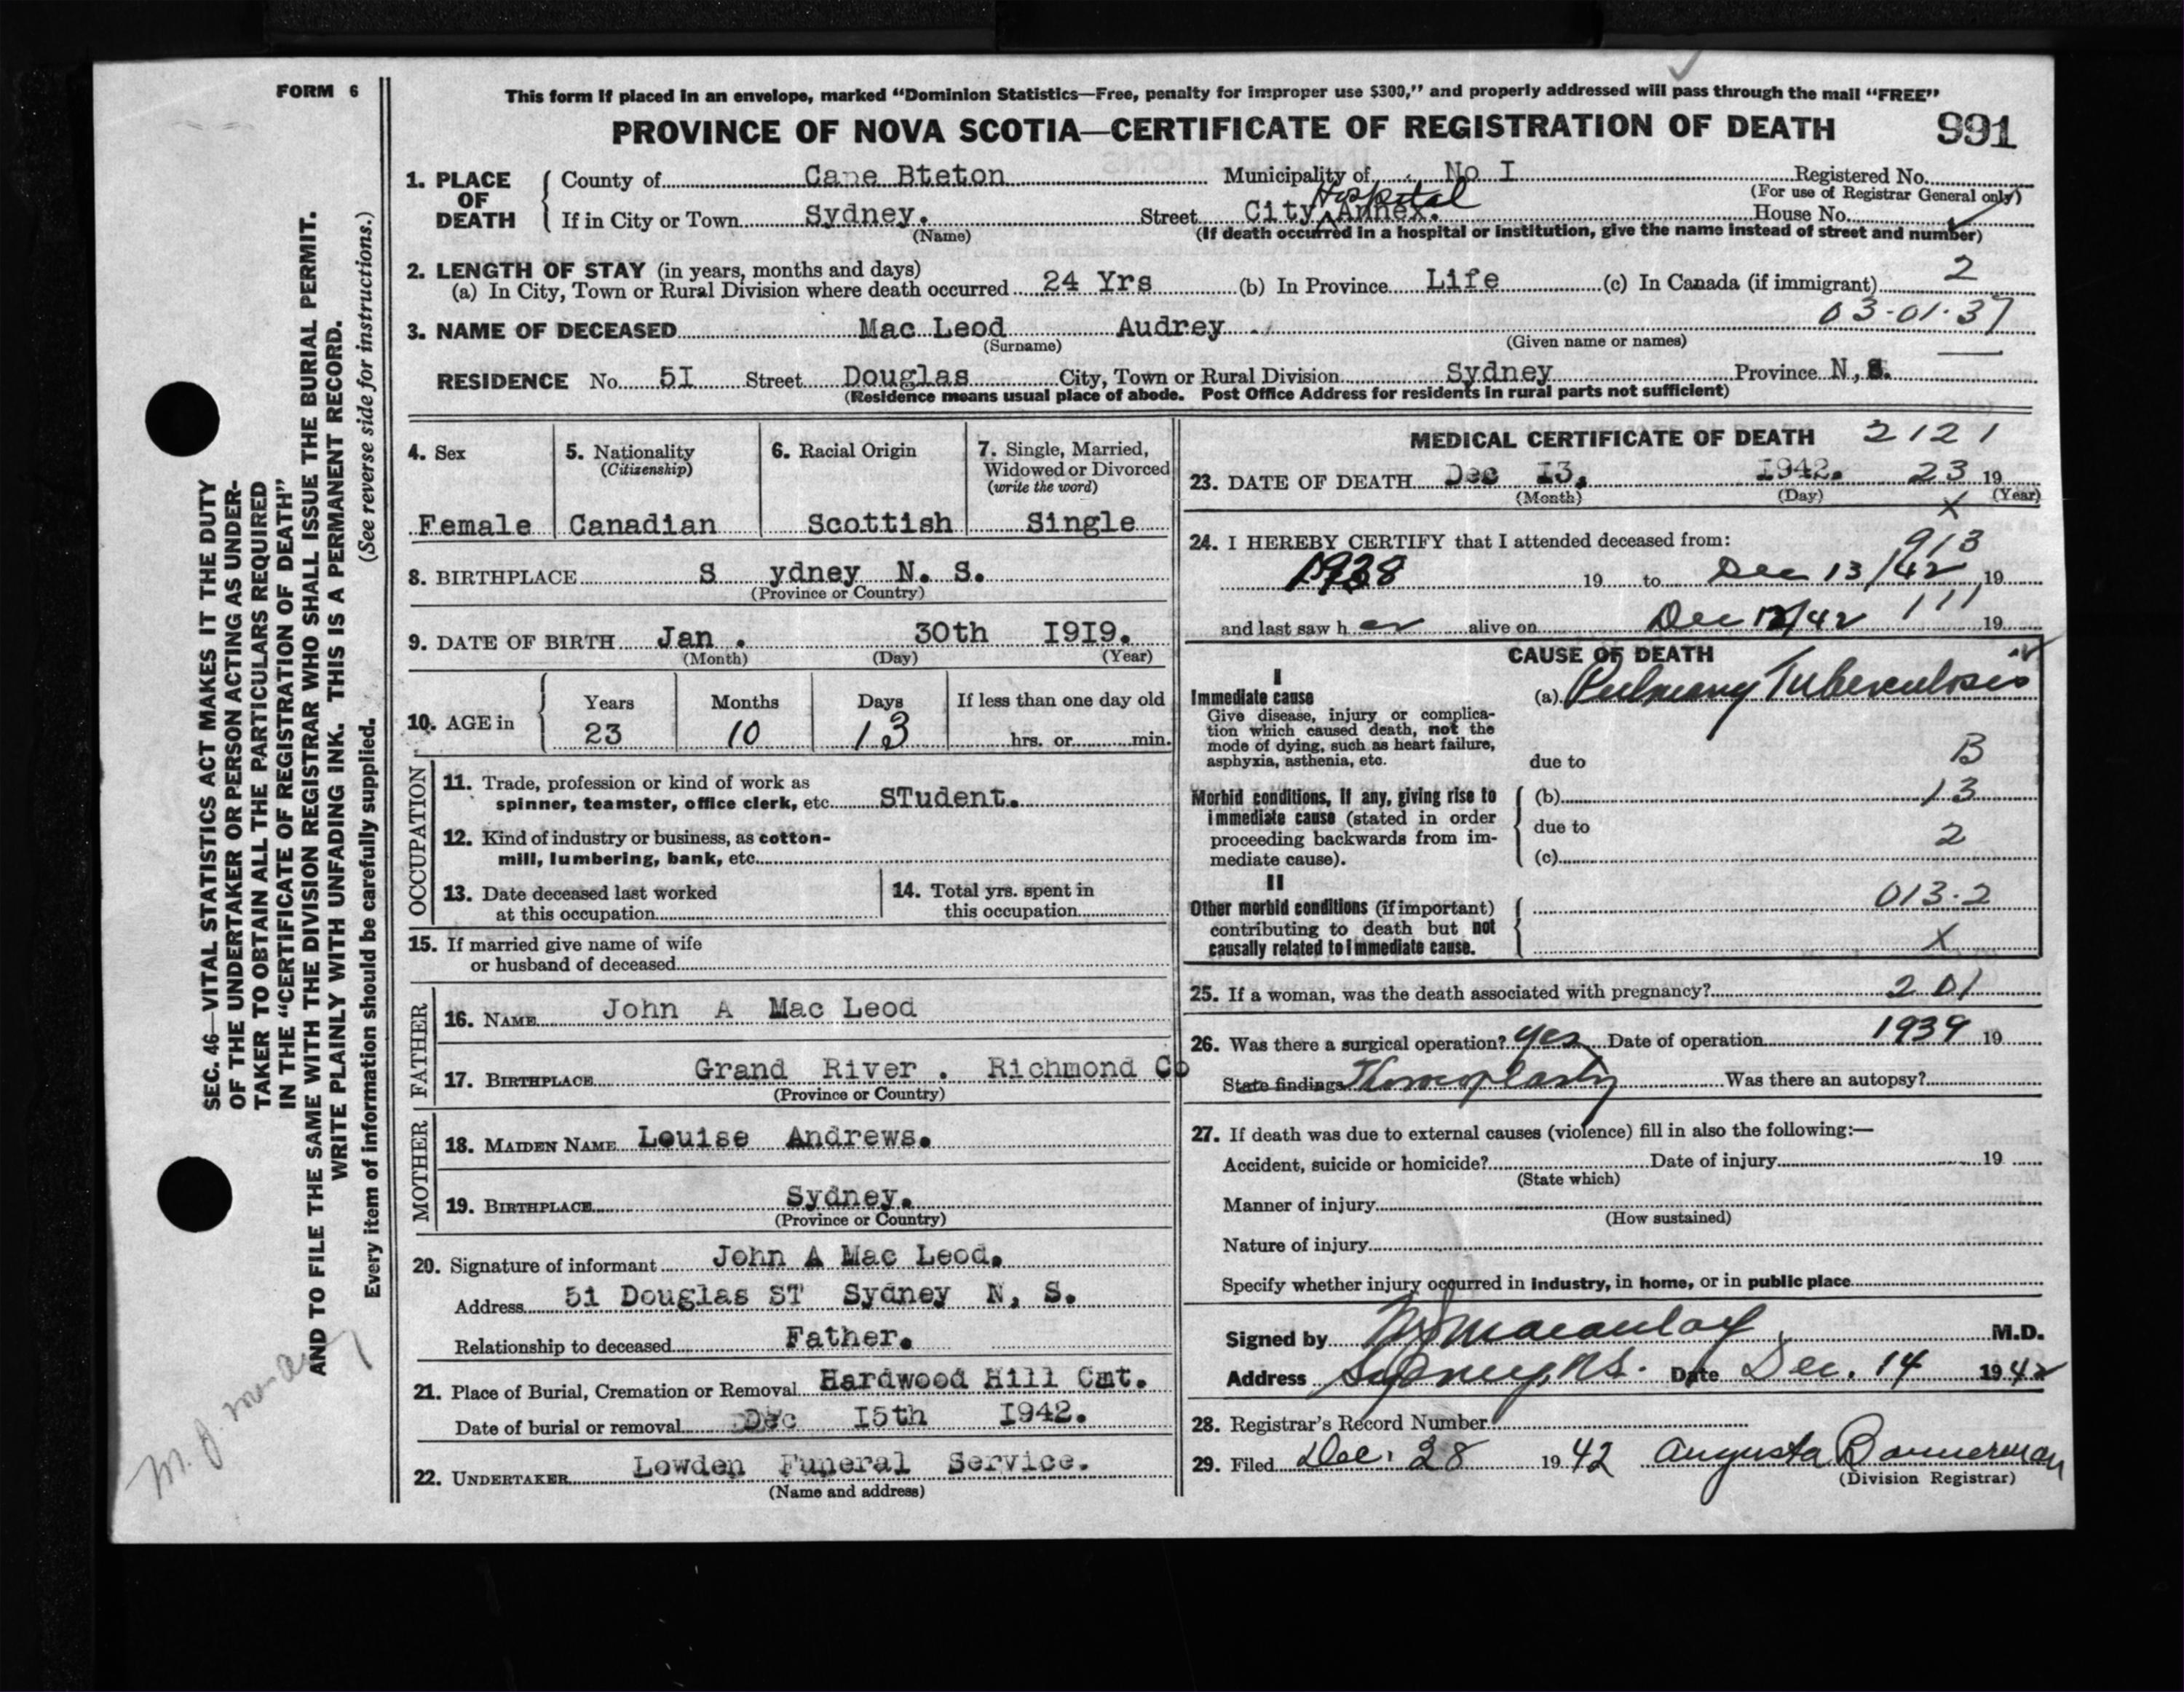 FORM 6
This form if placed in an envelope, marked "Dominion Statistics—Free, penalty for improper use $300," and properly addressed will pass through the mail "FREE"
PROVINCE OF NOVA SCOTIA—CERTIFICATE OF REGISTRATION OF DEATH 991
SEC. 46—VITAL STATISTICS ACT MAKES IT THE DUTY
OF THE UNDERTAKER OR PERSON ACTING AS UNDER-
TAKER TO OBTAIN ALL THE PARTICULARS REQUIRED
IN THE "CERTIFICATE OF REGISTRATION OF DEATH"
AND TO FILE THE SAME WITH THE DIVISION REGISTRAR WHO SHALL ISSUE THE BURIAL PERMIT.
WRITE PLAINLY WITH UNFADING INK. THIS IS A PERMANENT RECORD.
Every item of information should be carefully supplied. (See reverse side for instructions.)
1. PLACE OF DEATH County of Cape Bteton Municipality of No I Registered No.
(For use of Registrar General only)
If in City or Town Sydney. Street City Hospital Annex. House No.
(Name) (If death occurred in a hospital or institution, give the name instead of street and number)
2. LENGTH OF STAY (in years, months and days) 2
(a) In City, Town or Rural Division where death occurred 24 Yrs (b) In Province Life (c) In Canada (if immigrant)
03-01-37
3. NAME OF DECEASED Mac Leod Audrey
(Surname) (Given name or names)
RESIDENCE No. 5I Street Douglas City, Town or Rural Division Sydney Province N,S.
(Residence means usual place of abode. Post Office Address for residents in rural parts not sufficient)
4. Sex
Female
5. Nationality
(Citizenship)
Canadian
6. Racial Origin
Scottish
7. Single, Married,
Widowed or Divorced
(write the word)
Single
8. BIRTHPLACE S ydney N. S.
(Province or Country)
9. DATE OF BIRTH Jan . 30th I9I9.
(Month) (Day) (Year)
10. AGE in Years Months Days If less than one day old
23 10 13 hrs. or min.
OCCUPATION
11. Trade, profession or kind of work as
spinner, teamster, office clerk, etc. STudent.
12. Kind of industry or business, as cotton-
mill, lumbering, bank, etc.
13. Date deceased last worked
at this occupation
14. Total yrs. spent in
this occupation
15. If married give name of wife
or husband of deceased
FATHER
16. NAME John A Mac Leod
17. BIRTHPLACE Grand River . Richmond Co
(Province or Country)
MOTHER
18. MAIDEN NAME Louise Andrews.
19. BIRTHPLACE Sydney.
(Province or Country)
20. Signature of informant John A Mac Leod.
Address 51 Douglas ST Sydney N, S.
Relationship to deceased Father.
21. Place of Burial, Cremation or Removal Hardwood Hill Cmt.
Date of burial or removal Dec I5th I942.
22. UNDERTAKER Lowden Funeral Service.
(Name and address)
MEDICAL CERTIFICATE OF DEATH 2121
23. DATE OF DEATH Dec I3, I942. 23 19
(Month) (Day) (Year)
X
24. I HEREBY CERTIFY that I attended deceased from: 913
1938 19 to Dec 13/42 19
and last saw h er alive on Dec 12/42 111 19
CAUSE OF DEATH
I
Immediate cause
Give disease, injury or complica-
tion which caused death, not the
mode of dying, such as heart failure,
asphyxia, asthenia, etc.
(a) Pulmonary Tuberculosis
due to B
Morbid conditions, if any, giving rise to
immediate cause (stated in order
proceeding backwards from im-
mediate cause).
(b) 13
due to 2
(c)
II
Other morbid conditions (if important)
contributing to death but not
causally related to immediate cause.
013.2
X
25. If a woman, was the death associated with pregnancy? 201
26. Was there a surgical operation? Yes Date of operation 1939 19
State findings Thoracoplasty Was there an autopsy?
27. If death was due to external causes (violence) fill in also the following:—
Accident, suicide or homicide? Date of injury 19
(State which)
Manner of injury
(How sustained)
Nature of injury
Specify whether injury occurred in industry, in home, or in public place
Signed by Macaulay M.D.
Address Sydney, N.S. Date Dec. 14 1942
28. Registrar's Record Number
29. Filed Dec. 28 1942 Augusta Bannerman
(Division Registrar)